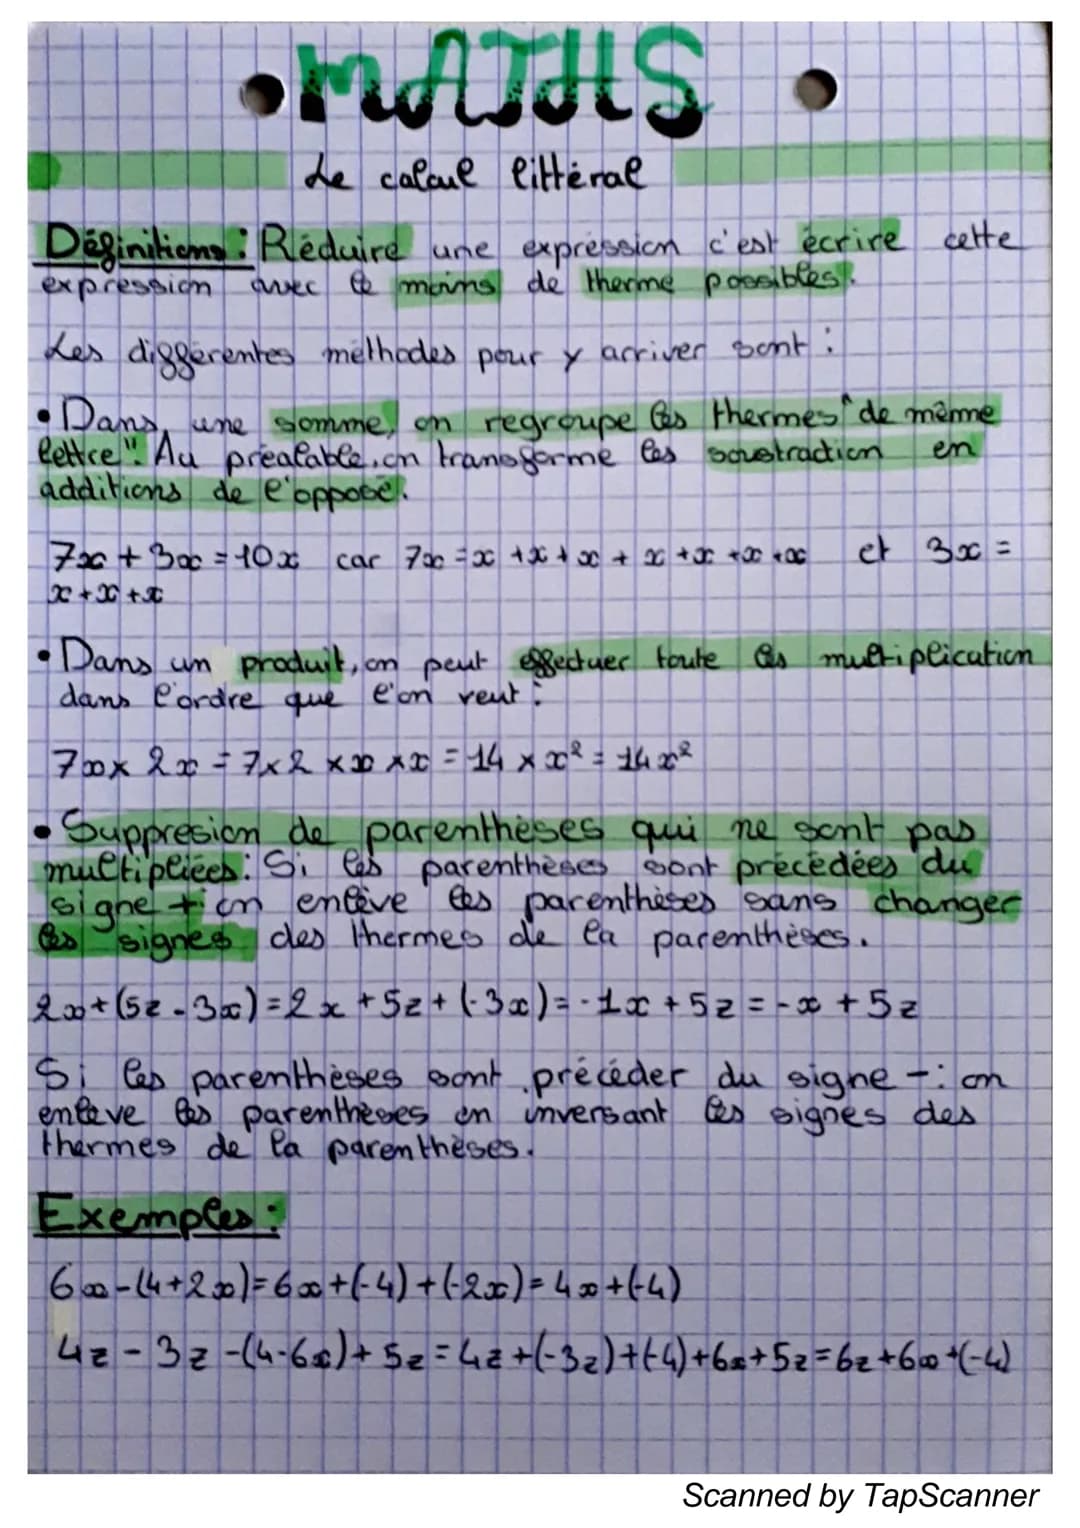 MATHS
Le calcul littéral
Définitions : Réduire une expression c'est écrire cette
expression avec le moins de therme possibles.
Les différentes méthodes pour y arriver sont :
• Dans une somme, on regroupe les thermes "de même
lettre". Au préalable, on transforme les soustraction en
additions de l'opposé.
7x + 3x = 10x car 7x = x + x + x + x + x + x + x et 3x =
x + x + x
• Dans un produit, on peut effectuer toute les multiplication
dans l'ordre que l'on veut :
7x × 2x = 7 × 2 × x × x = 14 × x² = 14x²
• Suppresion de parenthèses qui ne sont pas
multipliées : Si les parenthèses sont précédées du
signe + : on enlève les parenthèses sans changer
les signes des thermes de la parenthèses.
2x + (5z - 3x) = 2x + 5z + (-3x) = -1x + 5z = -x + 5z
Si les parenthèses sont précéder du signe - : on
enlève les parenthèses en inversant les signes des
thermes de la parenthèses.
Exemples :
6x - (4 + 2x) = 6x + (-4) + (-2x) = 4x + (-4)
4z - 3z - (4 - 6x) + 5z = 4z + (-3z) + (-4) + 6x + 5z = 6z + 6x + (-4)
Scanned by TapScanner